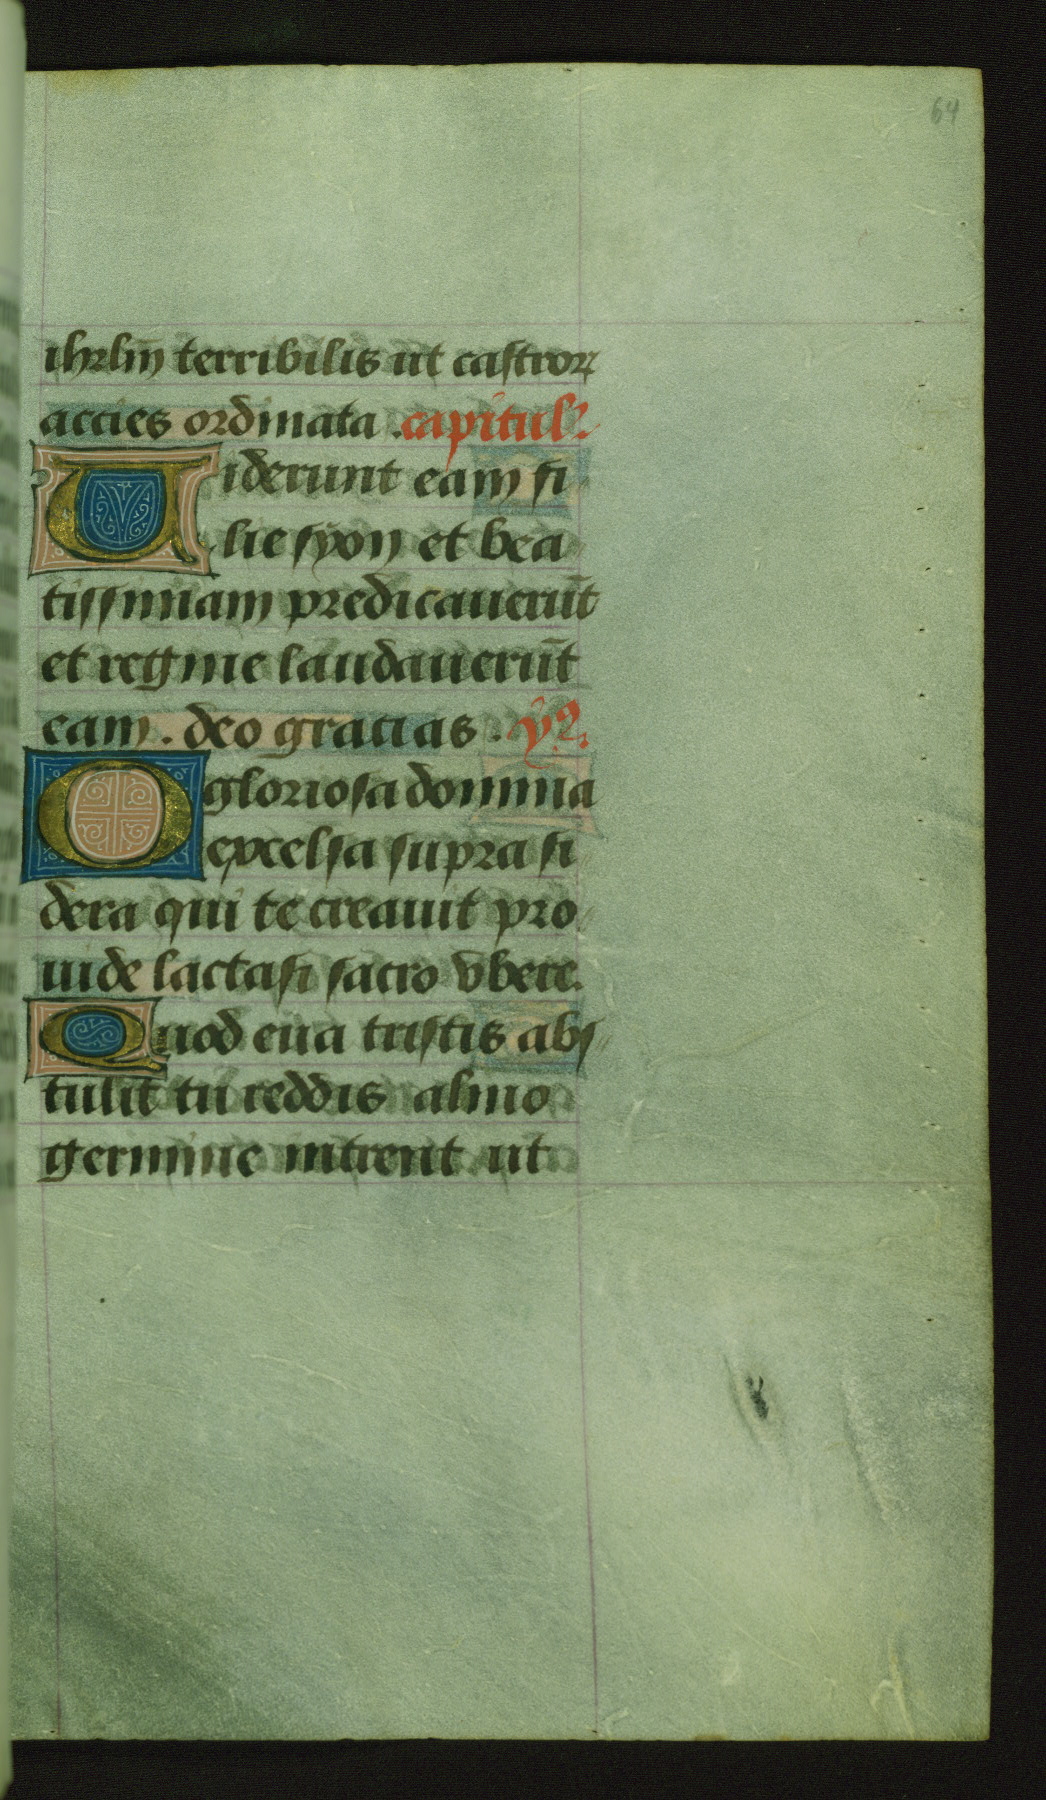 64
ihrlm̄ terribilis ut castrorꝝ
accies ordinata . capitul᷒.
Uiderunt eam fi
lie syon et bea
tissimam predicauerūt
et regine laudauerūt
eam . deo gracias . ẏ9.
O gloriosa domina
excelsa supra si
dera qui te creauit pro
uide lactasti sacro vbere.
Quod eua tristis abs
tulit tu reddis almo
germine intrent ut